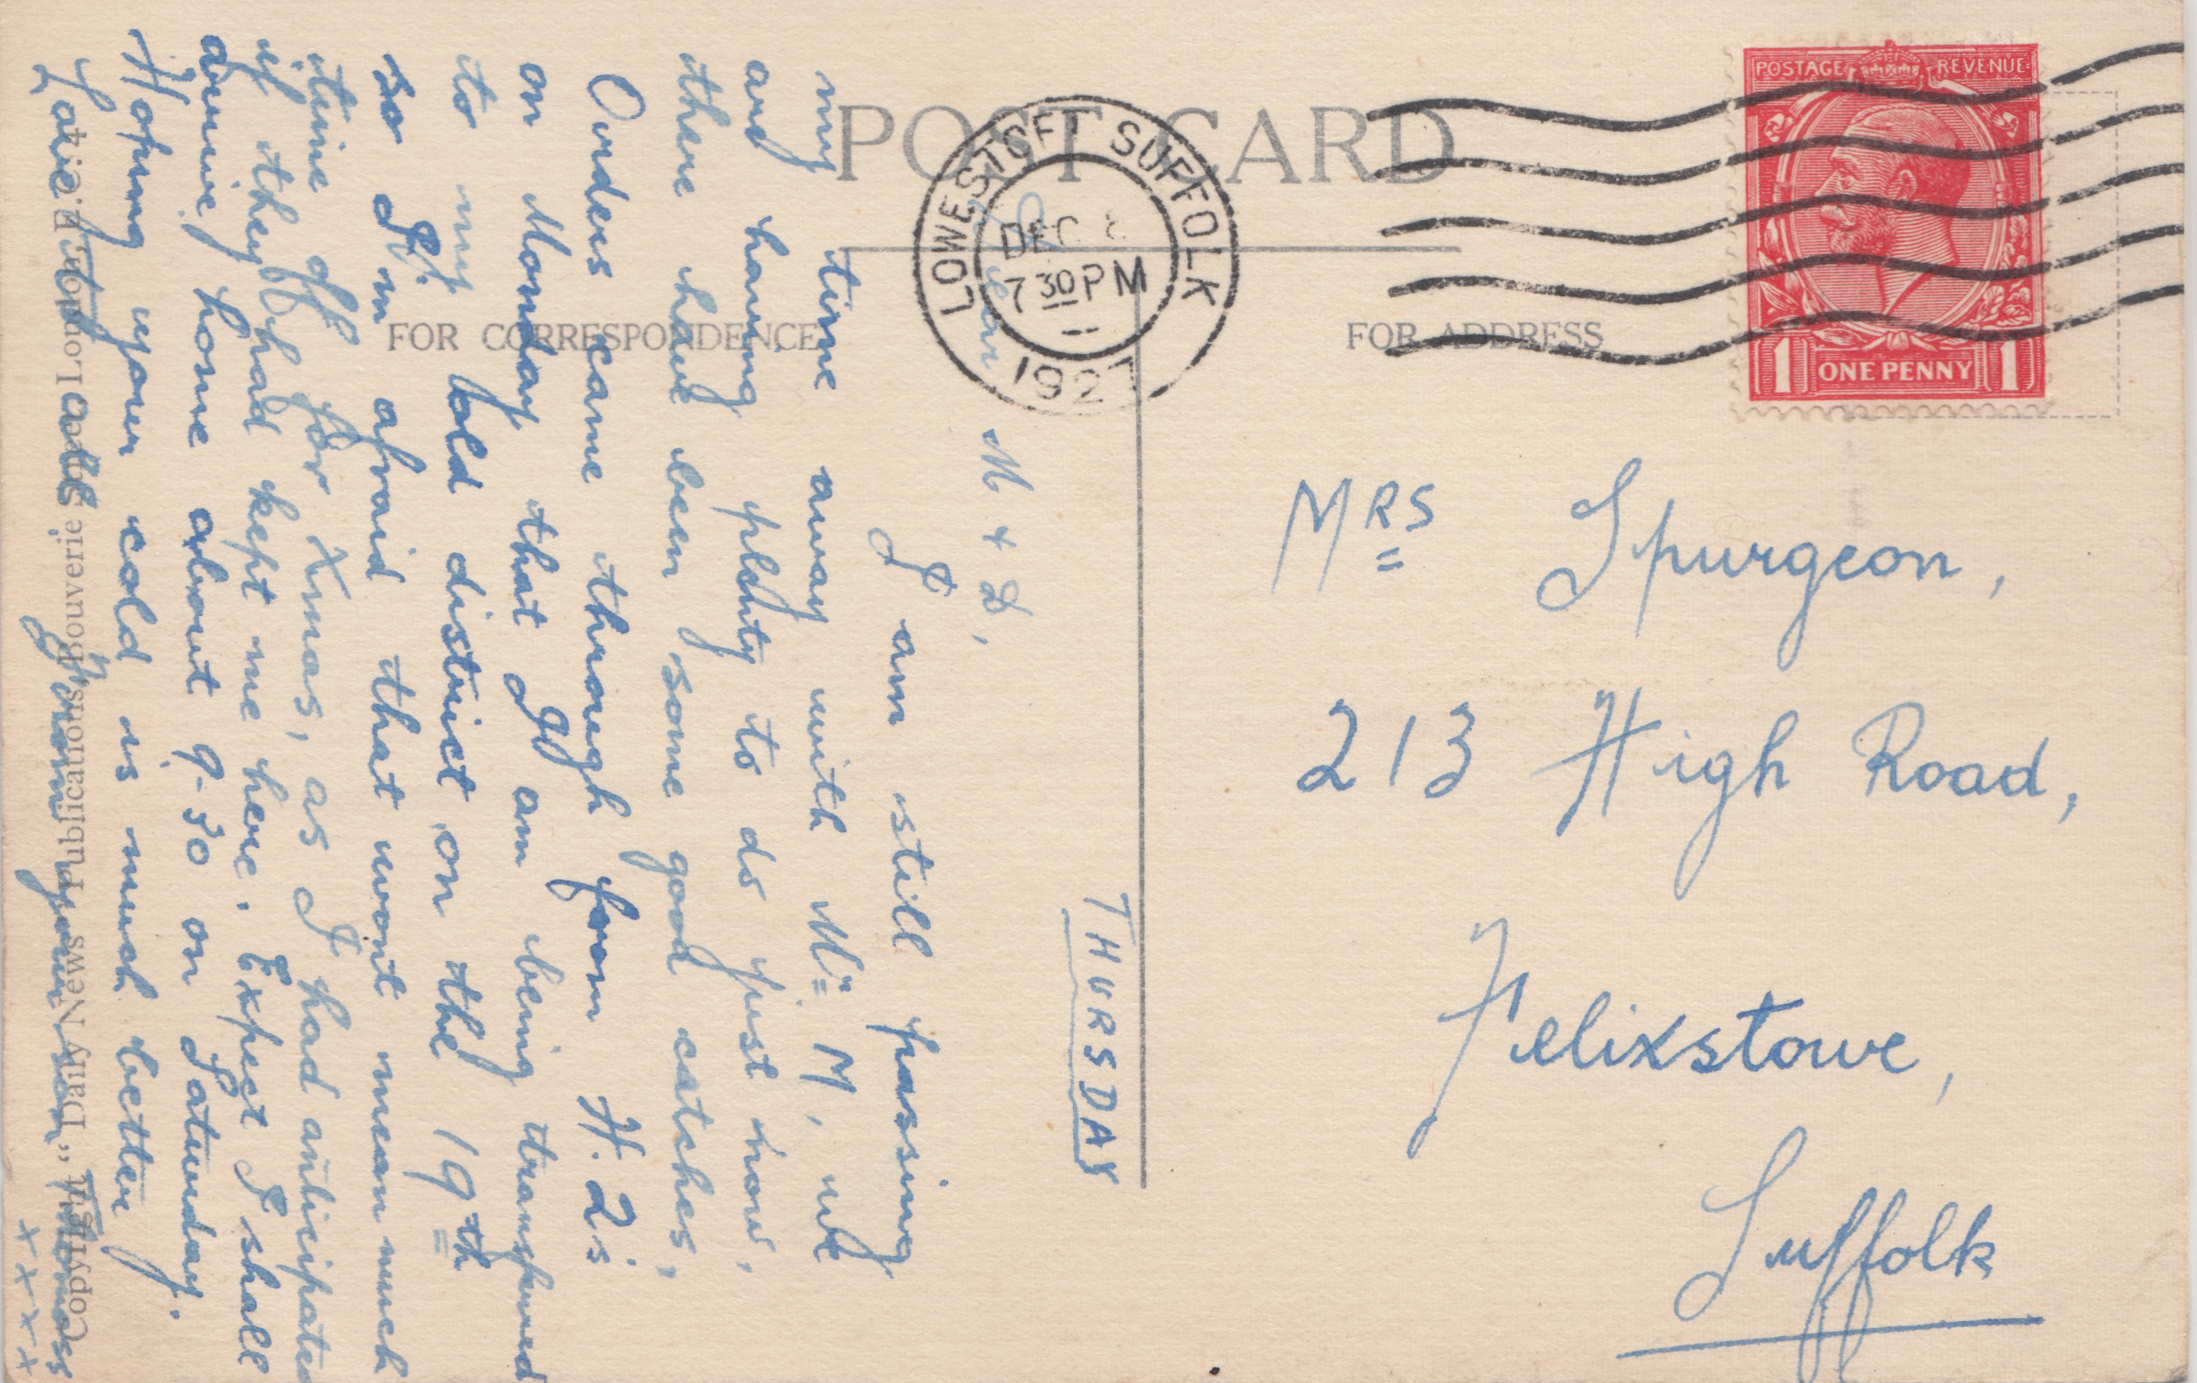 POST CARD
FOR CORRESPONDENCE
FOR ADDRESS
LOWESTOFT SUFFOLK
DEC 8
7 30 PM
1927
POSTAGE REVENUE
1 ONE PENNY 1
Mrs Spurgeon,
213 High Road,
Felixstowe,
Suffolk
THURSDAY
Dear M & D,
I am still passing
my time away with Mr M, we
are having plenty to do just now,
there have been some good catches,
Orders came through from H.Q's
on Monday that I am being transferred
to my old district on the 19th
so I'm afraid that wont mean much
time off for Xmas, as I had anticipated
if they had kept me here. Expect I shall
arrive home about 9-30 on Saturday.
Hoping your cold is much better
Love to all from your son Thomas
xxxx
Copyright "Daily News" Publications Bouverie Street London, E.C.4